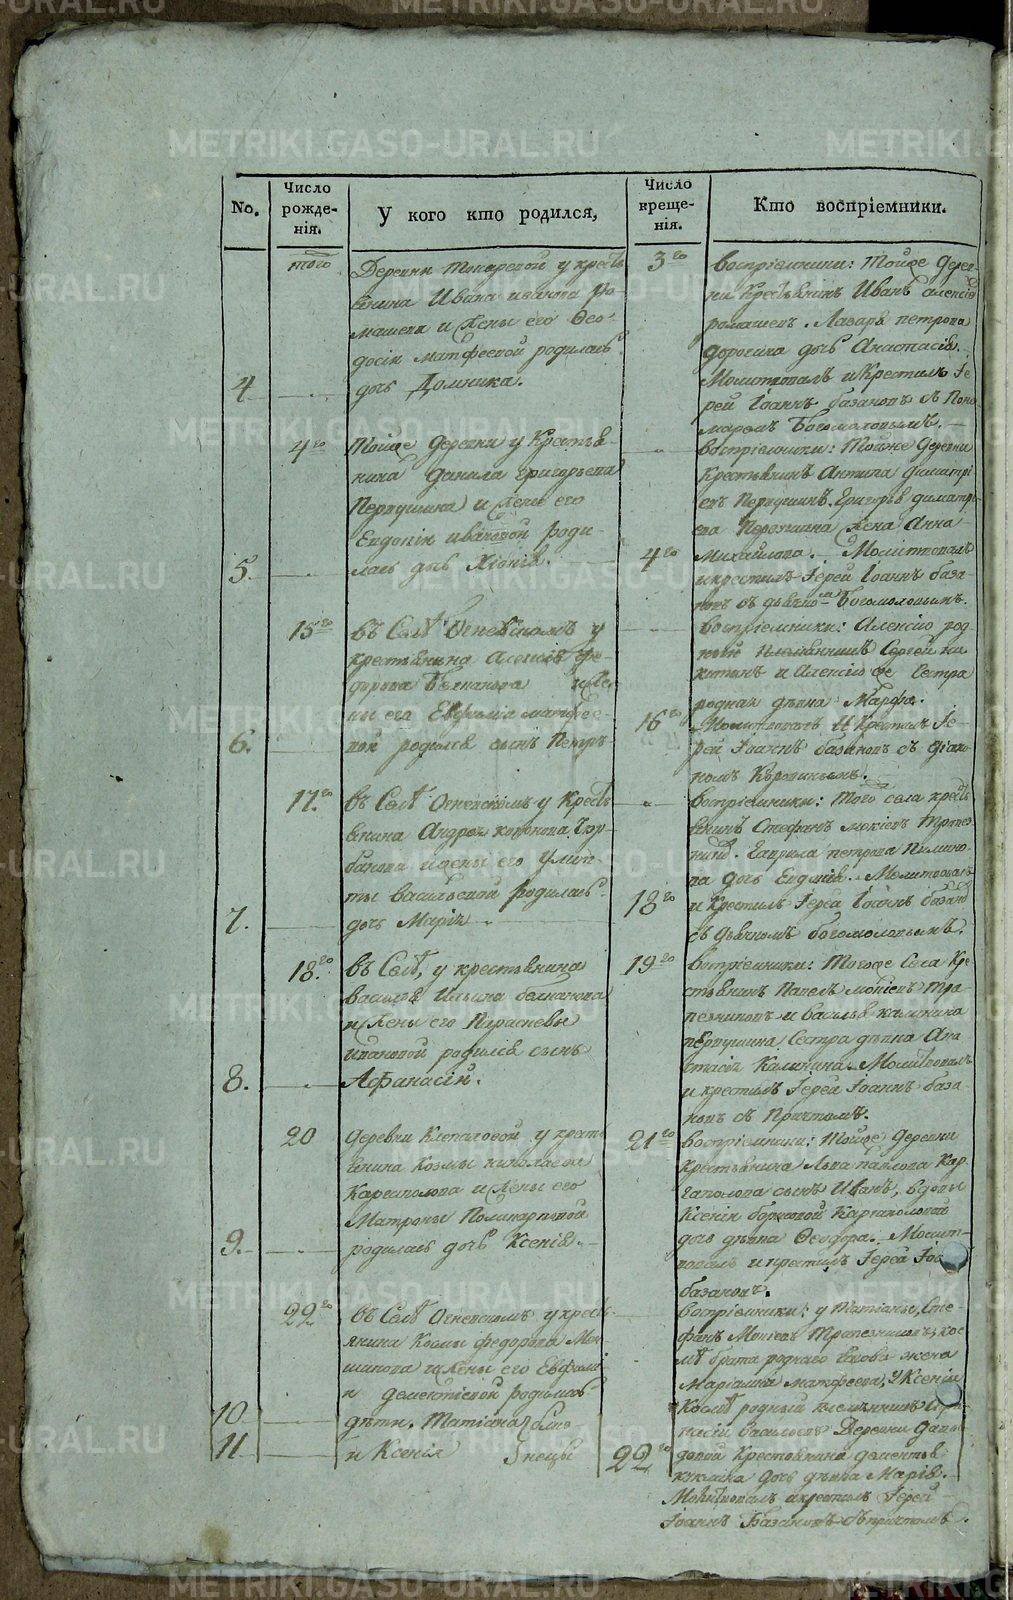 No.
Число рожде-
нія.
У кого кто родился,
Число
креще-
нія.
Кто воспріемники.
4
того
Деревни Токаревой у кресть
янина Ивана иванова Ро-
машева и жены его Ѳео-
досіи матфеевой родилась
дочь Домника.
3го
воспріемники: Тойже дерев-
ни Крестьянинъ Иванъ алексіев
ромашевъ. Лазаря петрова
дорогина дочь Анастасія.
Молитвовалъ и Крестилъ Іе-
рей Іоаннъ базановъ съ Поно-
маремъ Богомоловымъ.
5.
4го
Тойже деревни у Крестья-
нина Данила григорьева
Первушина и жены его
Евдокіи ивановой роди-
лась дочь Хіонія.
4го
воспріемники: Тойже деревни
Крестьянинъ Антипа димитрі
евъ Первушинъ. Григорья димитрі-
ева жена Анна
Михайлова. Молитвовалъ
и крестилъ Іерей Іоаннъ база-
новъ съ дьячкомъ Богомоловымъ.
6.
15го
въ Селѣ Огневскомъ у
крестьянина Алексія Фе-
дорова и же-
ны его Евфиміи матфее-
вой родился сынъ Петръ
16го
воспріемники: Алексію род-
ный племянникъ Сергей ни-
китинъ и Алексію же Сестра
родная дѣвка Марфа.
Молитвовалъ И Крестилъ Іе-
рей Іоаннъ базановъ съ діако-
номъ
7.
17го
въ Селѣ Огневскомъ у Кресть
янина Андрея
и жены его Улит-
ты васильевой родилась
дочь Марія
18го
воспріемники: Того села кресть
янинъ Стефанъ мокіевъ Трапез-
никовъ. Гаврила петрова
дочь Евдокія. Молитвовалъ
и Крестилъ Іерей Іоаннъ базановъ
съ дьячкомъ богомоловымъ.
8.
18го
въ Селѣ, у крестьянина
василья Ильина
и жены его Парасковьи
ивановой родился сынъ
Аѳанасій.
19го
воспріемники: Тогоже Села Кре-
стьянинъ Павелъ мокіевъ Тра-
пезниковъ и василья калинина
первушина Сестра дѣвка Ана-
стасія Калинина. Молитвовалъ
и крестилъ Іерей Іоаннъ база-
новъ съ Причтомъ.
9.
20
Деревни Клепаловой у кресть
янина Козмы николаева
Каргаполова и жены его
Матроны Поликарповой
родилась дочь Ксенія.
21го
воспріемники: Тойже деревни
Крестьянина Льва павлова Кар-
гаполова сынъ Иванъ, вдовы
Ксеніи борисовой Каргаполовой
дочь дѣвка Ѳеодора. Молит-
вовалъ и крестилъ Іерей Іоа
базановъ.
10.
11.
22го
въ Селѣ Огневскомъ у кресть-
янина Космы федорова Мень-
шикова и жены его Евфимі
и дементіевой родились
дѣти. Татіана близ-
и Ксенія нецы
22го
воспріемники: у Татіаны, Сте-
фанъ Мокіевъ Трапезниковъ, кос-
мѣ брата роднаго Іякова жена
Маріамна матфеева, У Ксеніи
Космѣ родный племянникъ
васильевъ Деревни
крестьянина дементья
дочь дѣвка Марія.
Молитвовалъ и крестилъ Іерей
Іоаннъ Базановъ съ причтомъ.